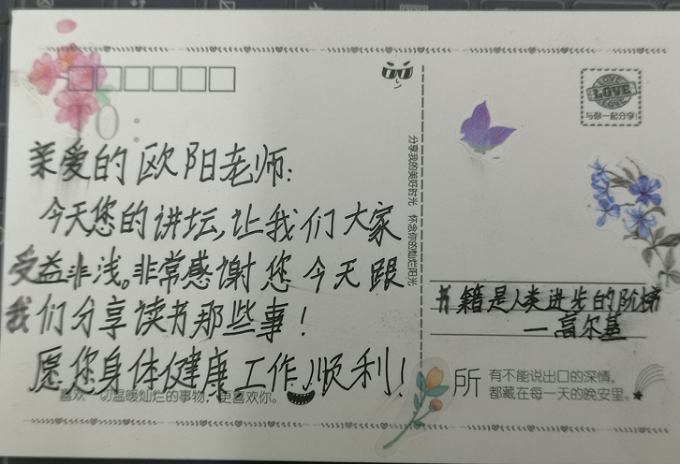 亲爱的欧阳老师:
今天您的讲坛,让我们大家
受益非浅。非常感谢您今天跟
我们分享读书那些事!
愿您身体健康工作顺利!
喜欢一切温暖灿烂的事物,更喜欢你。
分享我的美好时光 怀念你的灿烂阳光
LOVE
LOVE
LOVE
与你一起分享!
书籍是人类进步的阶梯
—高尔基
所有不能说出口的深情,
都藏在每一天的晚安里。